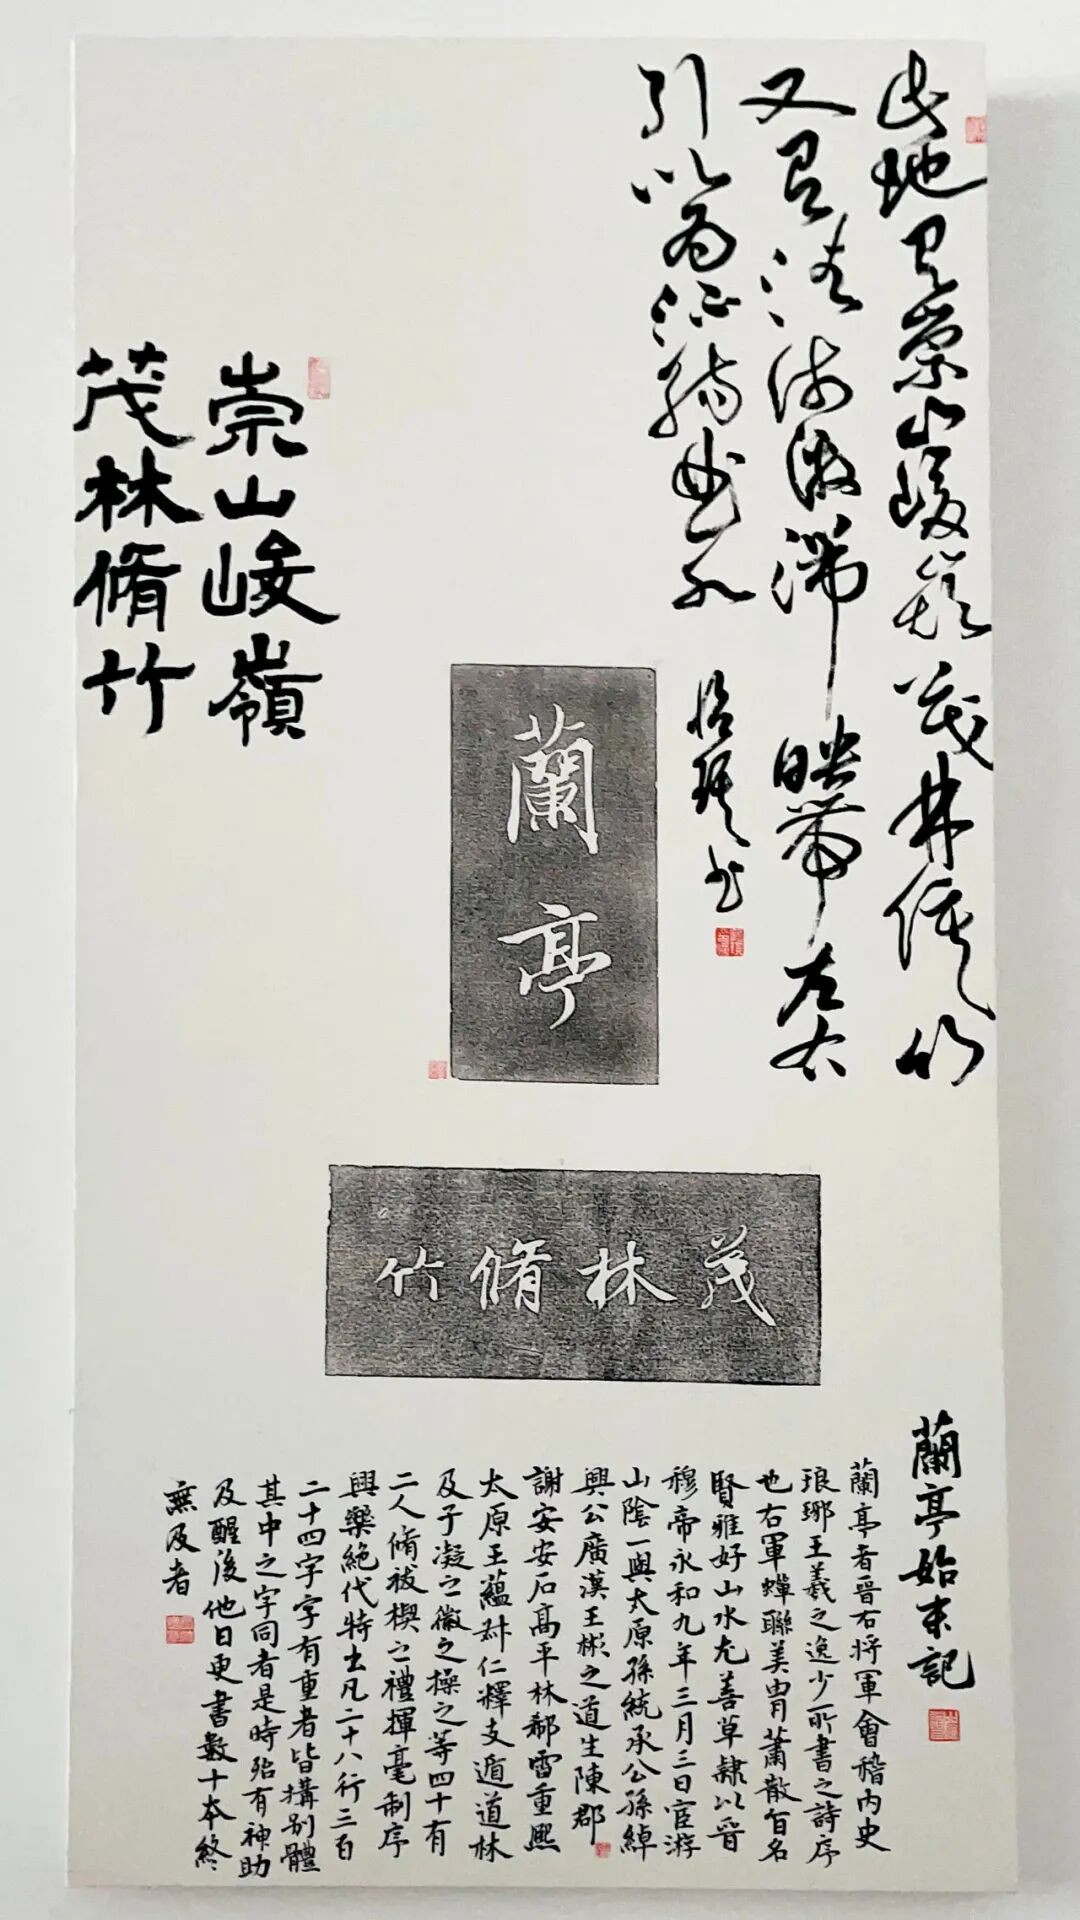 此地有崇山峻嶺茂林修竹
又有清流激湍映帶左右
引以為流觴曲水
書
崇山峻嶺
茂林脩竹
蘭亭
茂林脩竹
蘭亭始末記
蘭亭者晉右將軍會稽内史
琅琊王羲之逸少所書之詩序
也右軍蟬聯美胄蕭散名
賢雅好山水尤善草隸以晉
穆帝永和九年三月三日宦游
山陰一與太原孫統承公孫綽
興公廣漢王彬之道生陳郡
謝安安石高平林郗雷重熙
太原王蘊叔仁釋支遁道林
及子凝之徽之操之等四十有
二人脩祓禊之禮揮毫制序
興樂絕代特出凡二十八行三百
二十四字字有重者皆搆别體
其中之字同者是時殆有神助
及醒後他日更書數十本終
無及者